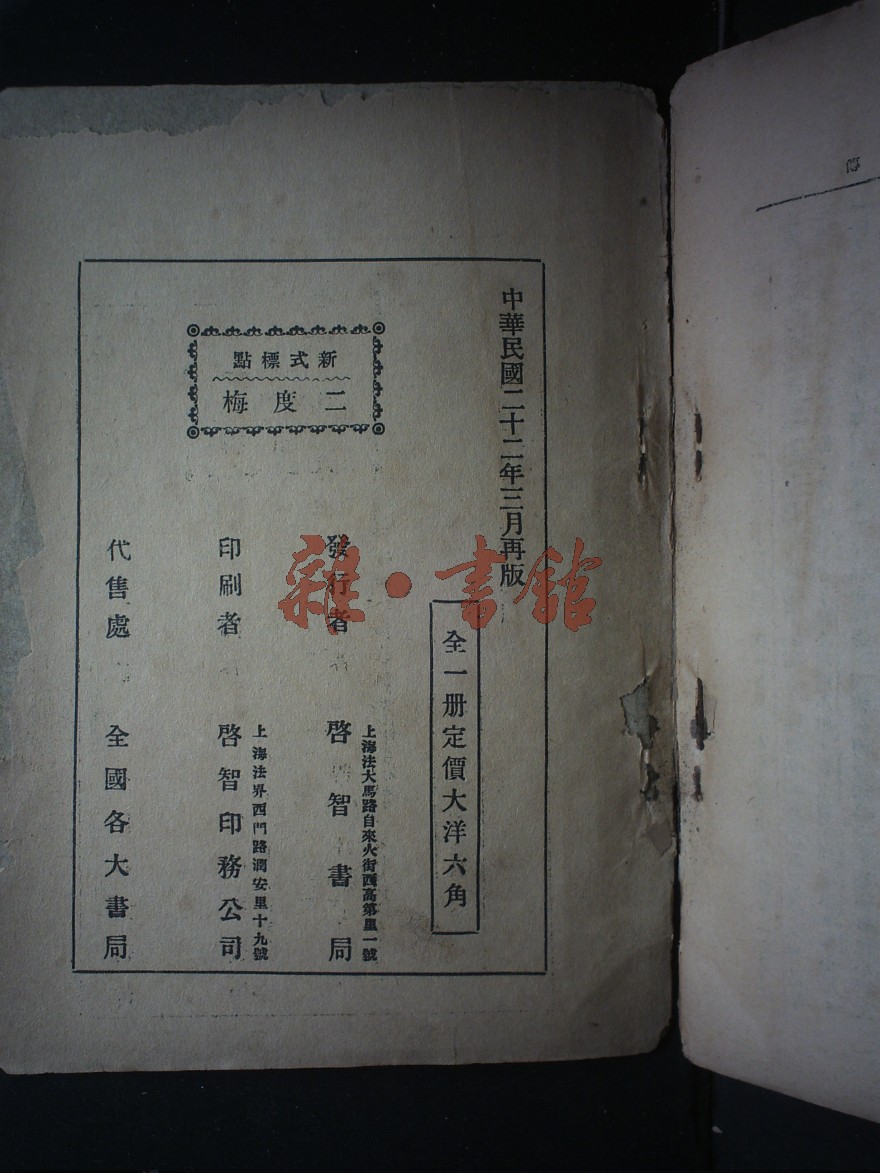 中華民國二十二年三月再版
全一册定價大洋六角
新式標點
二度梅
發行者
上海法大馬路自來火街西高第里一號
啓智書局
印刷者
上海法界西門路潤安里十九號
啓智印務公司
代售處
全國各大書局
雜·書館
傳